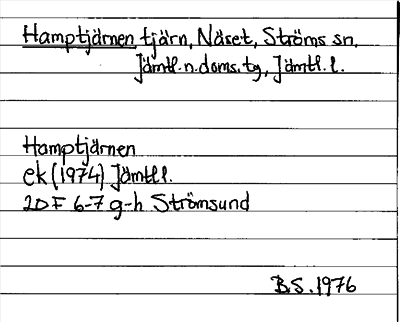 Hamptjärnen tjärn, Näset, Ströms sn.
Jämtl.n.doms.tg, Jämtl.l.
Hamptjärnen
ek (1974) Jämtl l.
20 F 6-7 g-h Strömsund
B.S. 1976